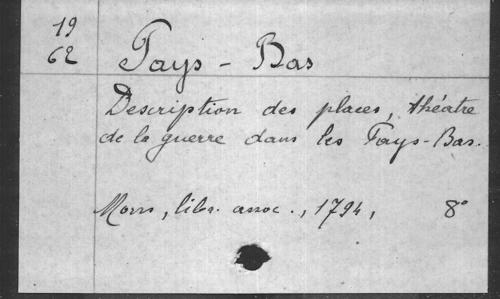 19
62
Pays-Bas
Description des places, théâtre
de la guerre dans les Pays-Bas.
Mons, libr. assoc., 1794, 8°